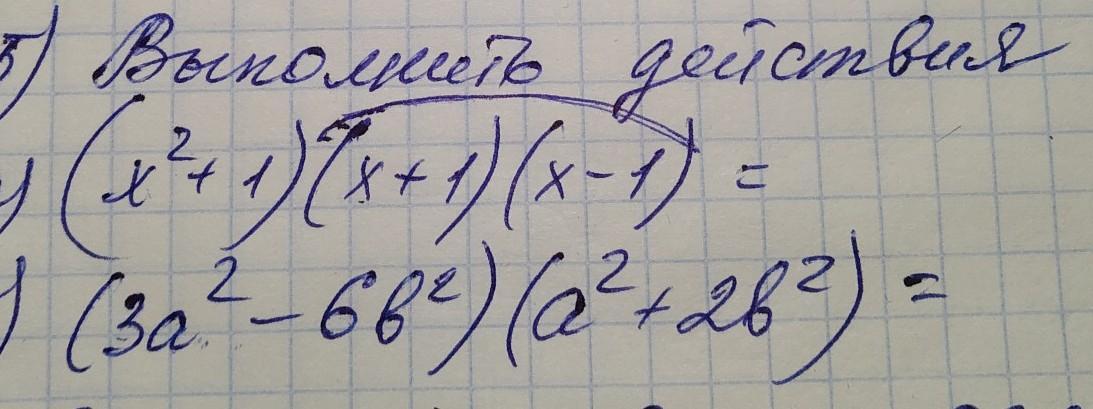 5) Выполнить действия
) (x²+1)(x+1)(x-1) =
) (3a²-6b²)(a²+2b²) =